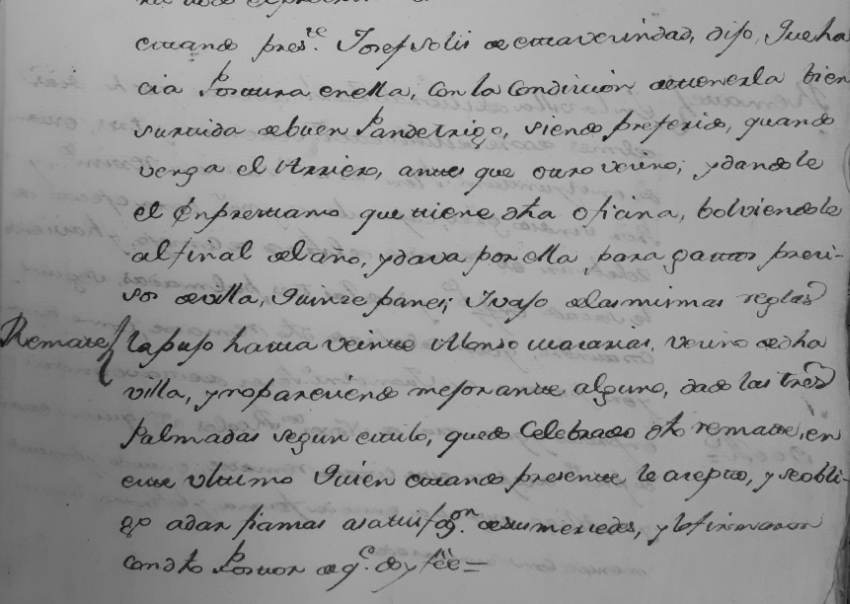 estando pres.te Josef Solis de esta vecindad, dijo, Que ha
cia Postura en ella, con la Condicion de tenerla bien
surtida de buen Pan de trigo, siendo preferido, quando
venga el Arriero, antes que otro vecino; y dandole
el Enprestamo que tiene dha oficina, bolviendole
al final del año, y dava por ella, para gastos preci-
sos de villa, Quinze panes; Y vajo de las mismas reglas
Remate la puso hasta veinte Alonso Matarias, vecino de dha
villa, y no pareciendo mejorante alguno, dado las tres
Palmadas segun estilo, quedo Celebrado dho remate, en
este ultimo Quien estando presente le acepto, y se obli-
go a dar fianzas a satisfa.on de sus mercedes, y lo firmaron
con dho Postor de q.e doy fee =